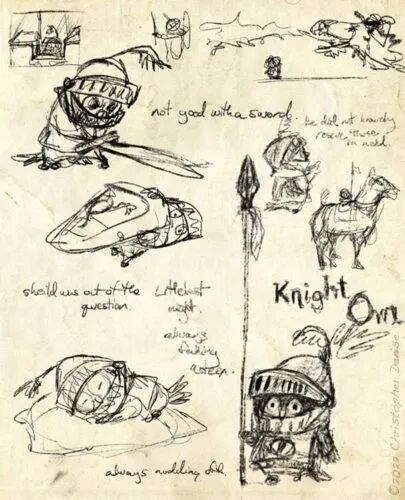 not good with a sword.
he did not bravely
rescue those
in need.
sheild was out of the
question.
Littlest
night.
always
falling
asleep.
Knight
Owl
always nodding off.
©2022 Christopher Denise